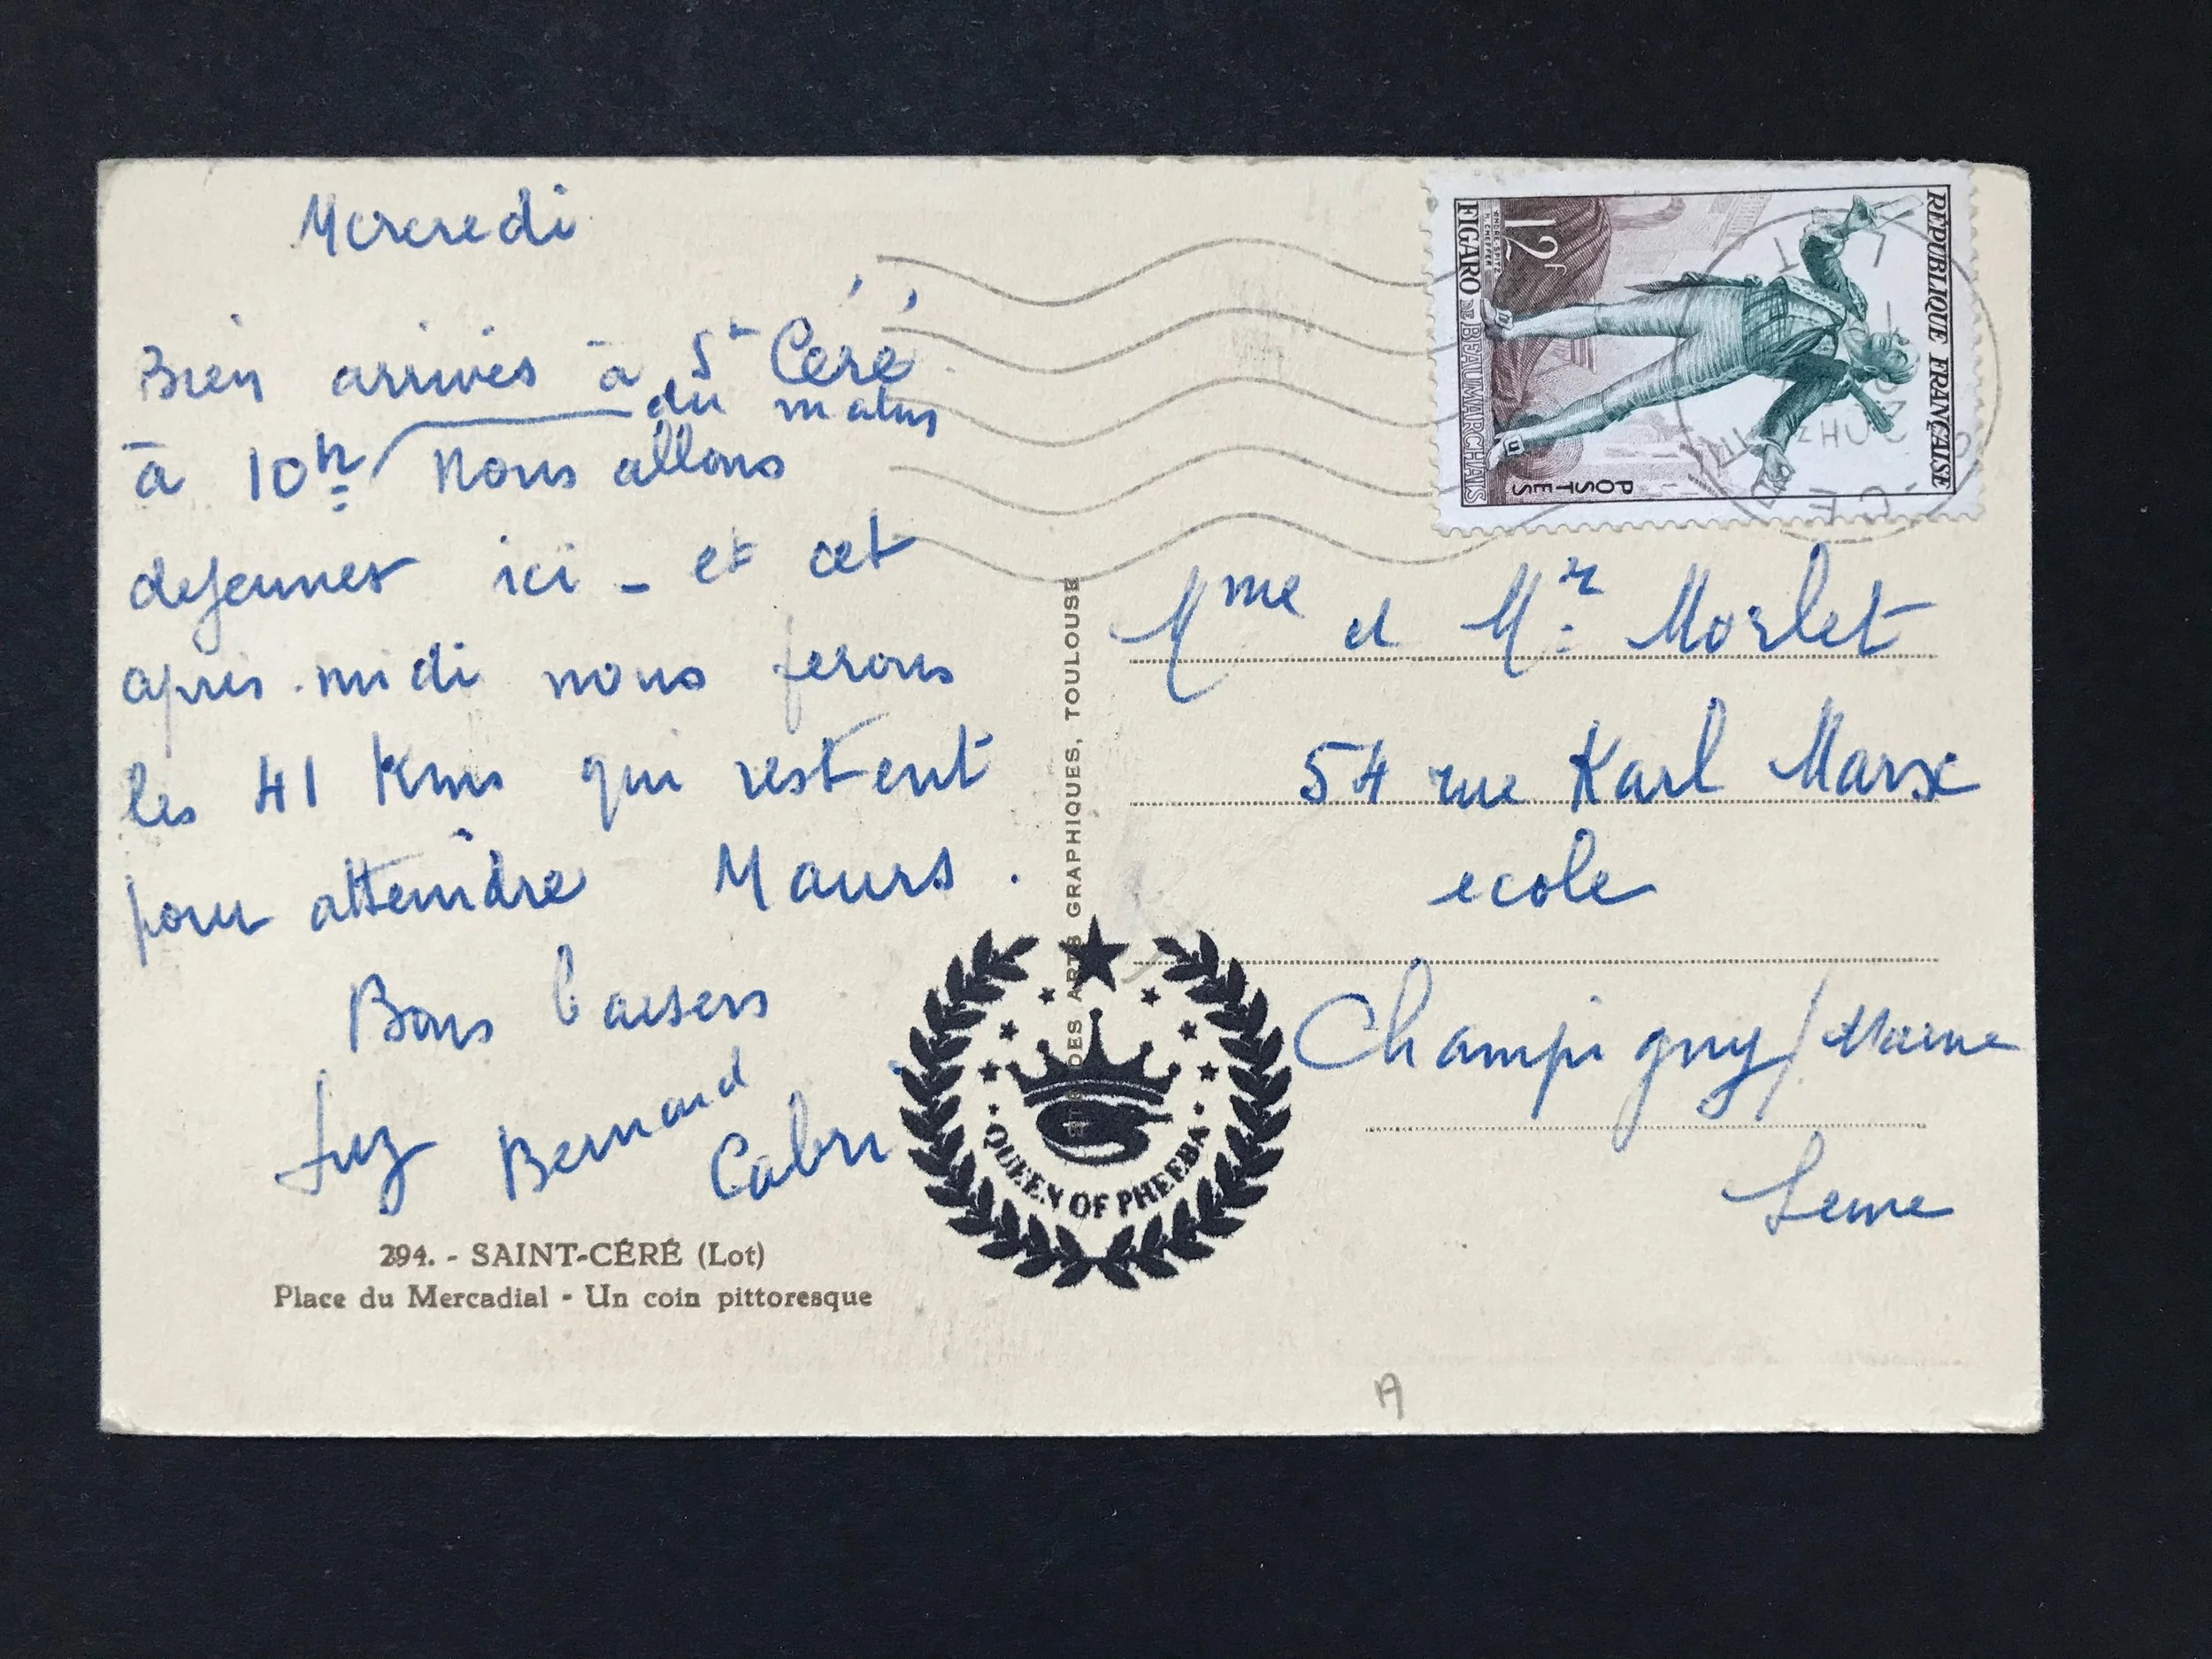 Mercredi
Bien arrivés à St Céré
à 10h du matin Nous allons
dejeuner ici - et cet
après-midi nous ferons
les 41 Kms qui restent
pour atteindre Maurs.
Bons baisers
Luz Bernard
Cabri
294. - SAINT-CÉRÉ (Lot)
Place du Mercadial - Un coin pittoresque
DES ARTS GRAPHIQUES, TOULOUSE
QUEEN OF PHEEBA
RÉPUBLIQUE FRANÇAISE
POSTES
12f
FIGARO DE BEAUMARCHAIS
Mme et Mr Morlet
54 rue Karl Marx
ecole
Champigny/Marne
Seine
A